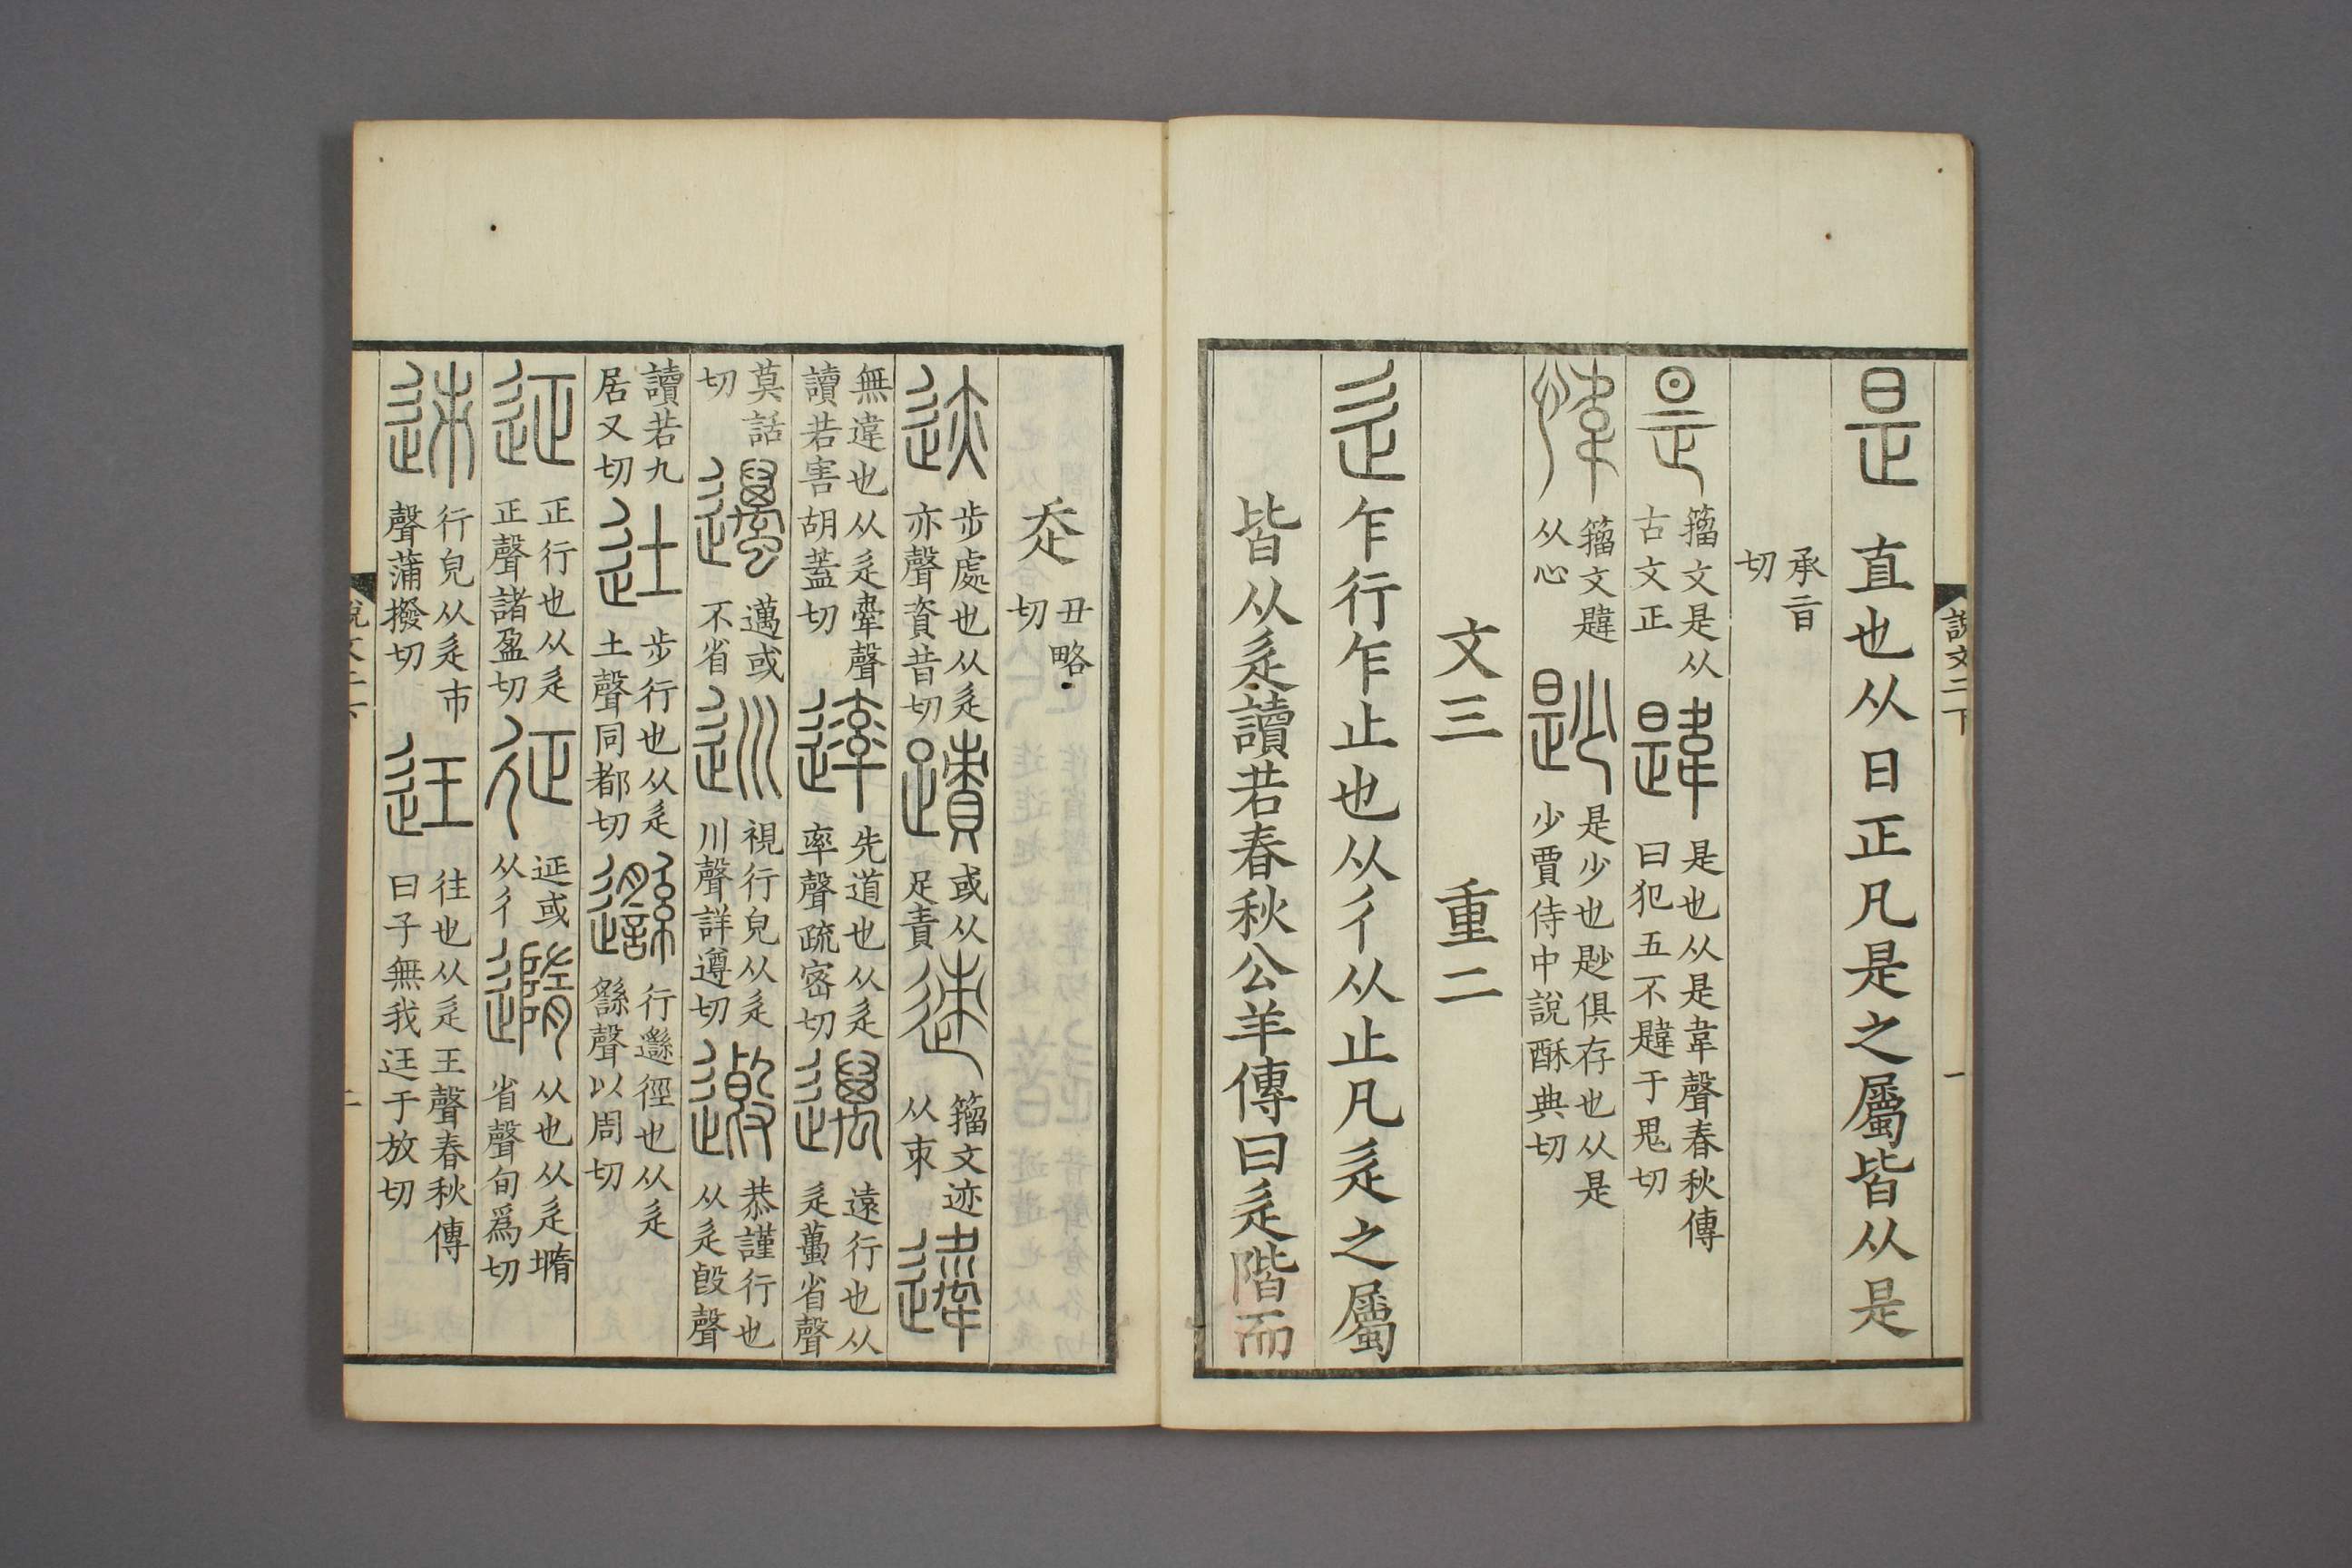 說文二下
一
是 直也从日正凡是之屬皆从是
承旨
切
昰 籒文是从
古文正
韙 是也从是韋聲春秋傳
曰犯五不韙于鬼切
愇 籒文韙
从心
尟 是少也尟俱存也从是
少賈侍中說酥典切
文三 重二
辵 乍行乍止也从彳从止凡辵之屬
皆从辵讀若春秋公羊傳曰辵階而
走
丑略
切
迹 步處也从辵
亦聲資昔切
蹟 或从
足責
速 籒文迹
从朿
𨘷 無違也从辵牽聲
讀若害胡蓋切
𨗓 先道也从辵
率聲疏密切
邁 遠行也从
辵蠆省聲
莫話
切
邁或
不省
巡 視行皃从辵
川聲詳遵切
恭謹行也
从辵𣪘聲
讀若九
居又切
𨑒 步行也从辵
土聲同都切
邎 行邎徑也从辵
繇聲以周切
延 正行也从辵
正聲諸盈切
征 𨒌或
从彳
隨 从也从辵𡐦
省聲旬爲切
𨒅 行皃从辵巿
聲蒲撥切
迋 往也从辵王聲春秋傳
曰子無我迋于放切
說文二下
二